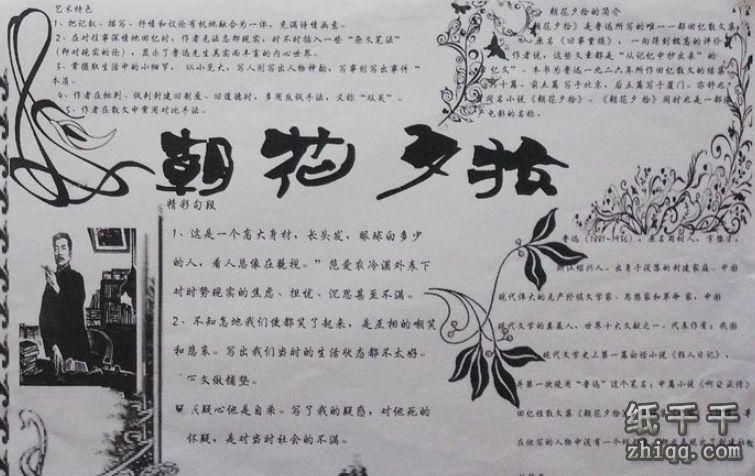 艺术特色
1、把记叙、描写、抒情和议论有机地融合为一体，充满诗情画意。
2、在对往事深情地回忆时，作者无法忘却现实，时不时插入一些“杂文笔法”
（即对现实的议论），显示了鲁迅先生真实而丰富的内心世界。
3、常摄取生活中的小细节，以小见大，写人则写出人物神韵，写事则写出事件
本质。
4、作者在批判、讽刺封建旧制度、旧道德时，多用反讽手法，又称“双关”。
5、作者在散文中常用对比手法。
朝花夕拾的简介
《朝花夕拾》是鲁迅所写的唯一一部回忆散文集
原名《旧事重提》，一向得到极高的评价
作者说，这些文章都是“从记忆中抄出来”的
忆文”。本书为鲁迅一九二六年所作回忆散文的结集
十篇。前五篇写于北京，后五篇写于厦门。
闻名小说《朝花夕拾》。《朝花夕拾》同时也是一部
电影的名称。
朝花夕拾
精彩句段
1、这是一个高大身材，长头发，眼球白多少
的人，看人总像在藐视。”范爱农冷漠外表下
对时势现实的焦虑、担忧、沉思甚至不满。
2、不知怎地我们便都笑了起来，是互相的嘲笑
和悲哀。写出我们当时的生活状态都不太好。
下文做铺垫。
疑心他是自杀。写了我的疑惑，对他死的
怀疑，是对当时社会的不满。
鲁迅（1881-1936），原名周树人，字豫才，
浙江绍兴人。出身于没落的封建家庭。中国
现代伟大的无产阶级文学家、思想家和革命家，中国
现代文学的奠基人，世界十大文豪之一。代表作有：我国
现代文学史上第一篇白话小说《狂人日记》、
并第一次使用“鲁迅”这个笔名；中篇小说《阿Q正传》
回忆性散文集《朝花夕拾》
在他写的人物中没有一个
纸干干
zhiqq.com